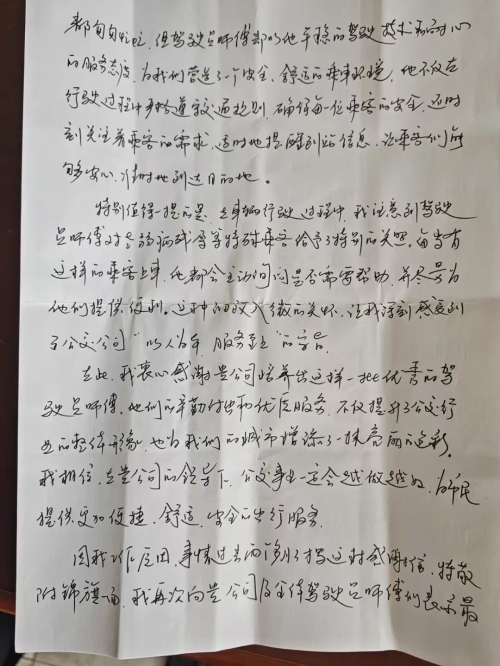 都匆匆忙忙,但驾驶员师傅都以他平稳的驾驶技术和耐心
的服务态度,为我们营造了一个安全、舒适的乘车环境,他不仅在
行驶过程中严格遵守交通规则,确保每一位乘客的安全,还时
刻关注着乘客的需求,适时地提醒到站信息,让乘客们能
够安心、准时地到达目的地。
特别值得一提的是,在车辆行驶过程中,我注意到驾驶
员师傅对老弱病残孕等特殊乘客给予了特别的关照,每当有
这样的乘客上车,他都会主动询问是否需要帮助,并尽量为
他们提供便利。这种细致入微的关怀,让我深刻感受到
了公交公司"以人为本,服务至上"的宗旨。
在此,我衷心感谢贵公司培养出这样一批优秀的驾
驶员师傅,他们的辛勤付出和优质服务,不仅提升了公交行
业的整体形象,也为我们的城市增添了一抹亮丽的色彩。
我相信,在贵公司的领导下,公交事业一定会越做越好,为市民
提供更加便捷、舒适、安全的出行服务。
因我工作原因,事情过去两个月了才写这封感谢信,特敬
附锦旗一面,我再次向贵公司及全体驾驶员师傅们表示最